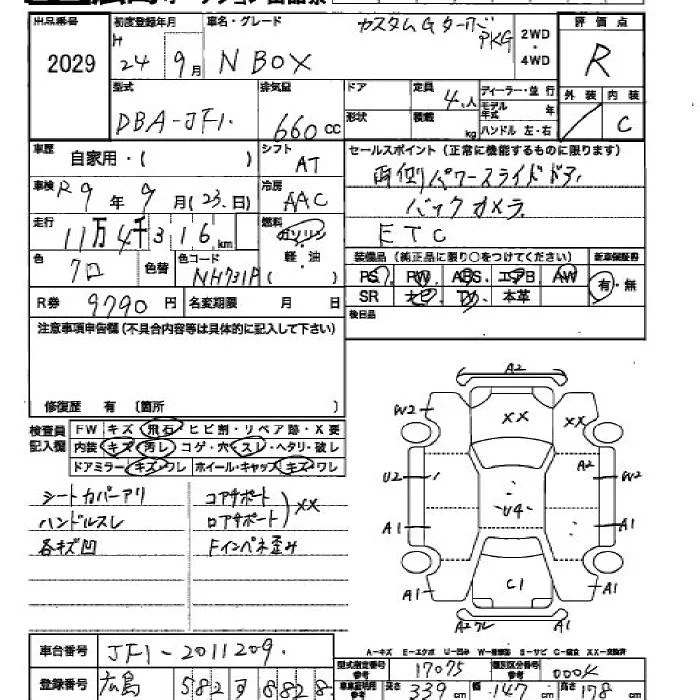 出品番号 初度登録年月 車名・グレード カスタムGターボ PKG 2WD・4WD 評価点
2029 H24年9月 N BOX R
型式 排気量 ドア 定員 ディーラー・並行 外装 内装
DBA-JF1. 660cc 4人 モデル年式 年 C
形状 積載 kg ハンドル 左・右
車歴 自家用・( ) シフト AT セールスポイント(正常に機能するものに限ります)
車検 R9年9月(23日) 冷房 AAC 両側パワースライドドア
バックカメラ
走行 11万4千316km 燃料 ガソリン 軽・油 ( ) ETC
色 7口 色替 色コード NH731P 装備品(純正品に限り○をつけてください) 新車保証書
PS PW ABS エアB AW 有・無
R券 9790円 名変期限 月 日 SR ナビ TV 本革
注意事項申告欄(不具合内容等は具体的に記入して下さい) 後日品
修復歴 有 (箇所
検査員記入欄 FW キズ・飛石・ヒビ割・リペア跡・X要
内装 キズ・汚レ・コゲ・穴・スレ・ヘタリ・破レ
ドアミラー キズ・ワレ ホイール・キャップ キズ・ワレ
シートカバーアリ コアサポート
ハンドルスレ ロアサポート XX
各キズ凹 Fインパネ歪み
A2
W2 XX XX
U2 A2 W2
A1 U4 A1
A1 C1 A1
A2ワレ
A-キズ E-エクボ U-凹み W-補修跡 S-サビ C-腐食 XX-交換済
車台番号 JF1-2011209. 型式指定番号 参考 17075 類別区分番号 参考
登録番号 広島 582 す 8828 車庫証明用 参考 長さ 339cm 幅 147cm 高さ 178cm